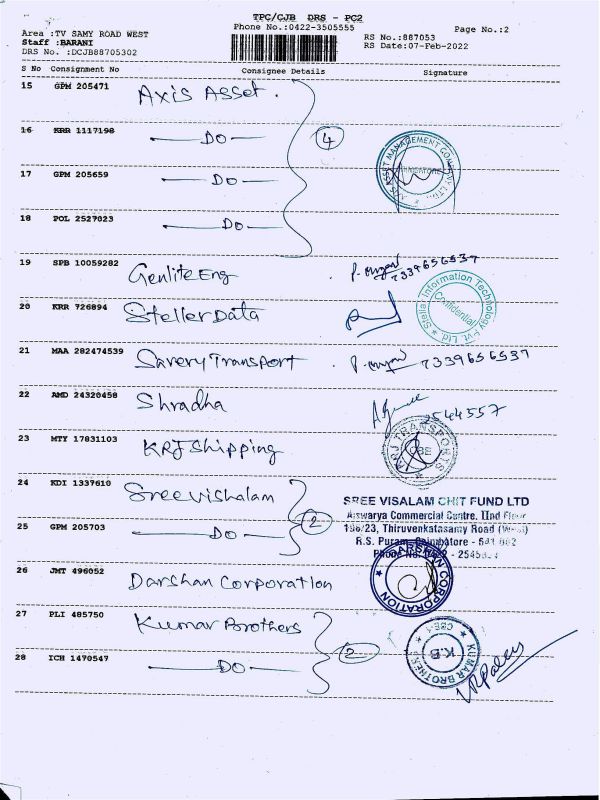 TPC/CJB DRS - PC2
Phone No.:0422-3505555
Page No.:2
Area :TV SAMY ROAD WEST
Staff :BARANI
DRS No. :DCJB88705302
RS No.:887053
RS Date:07-Feb-2022
S No Consignment No Consignee Details Signature
15 GPM 205471 Axis Asset.
16 KRR 1117198 —DO—
4
17 GPM 205659 —DO—
AXIS ASSET MANAGEMENT
18 POL 2527023 —DO—
19 SPB 10059282 Genlite Eng 7339656537
20 KRR 726894 Steller Data
Stellar Information Technology Pvt. Ltd.
Confidential
21 MAA 282474539 Savery Transport 7339656537
22 AMD 24320458 Shradha 2544557
23 MTY 17831103 KRJ Shipping
KRJ TRANSPORTS
CBE
24 KDI 1337610 Sreevishalam
SREE VISALAM CHIT FUND LTD
Aiswarya Commercial Centre, IInd Floor
196/23, Thiruvenkatasamy Road
2
25 GPM 205703 —DO—
R.S. Puram, Coimbatore -
Phone No: 0422 -
26 JMT 496052 Darshan Corporation
DARSHAN CORPORATION
27 PLI 485750 Kumar Brothers
2
KUMAR BROTHERS
K.B
28 ICH 1470547 —DO—